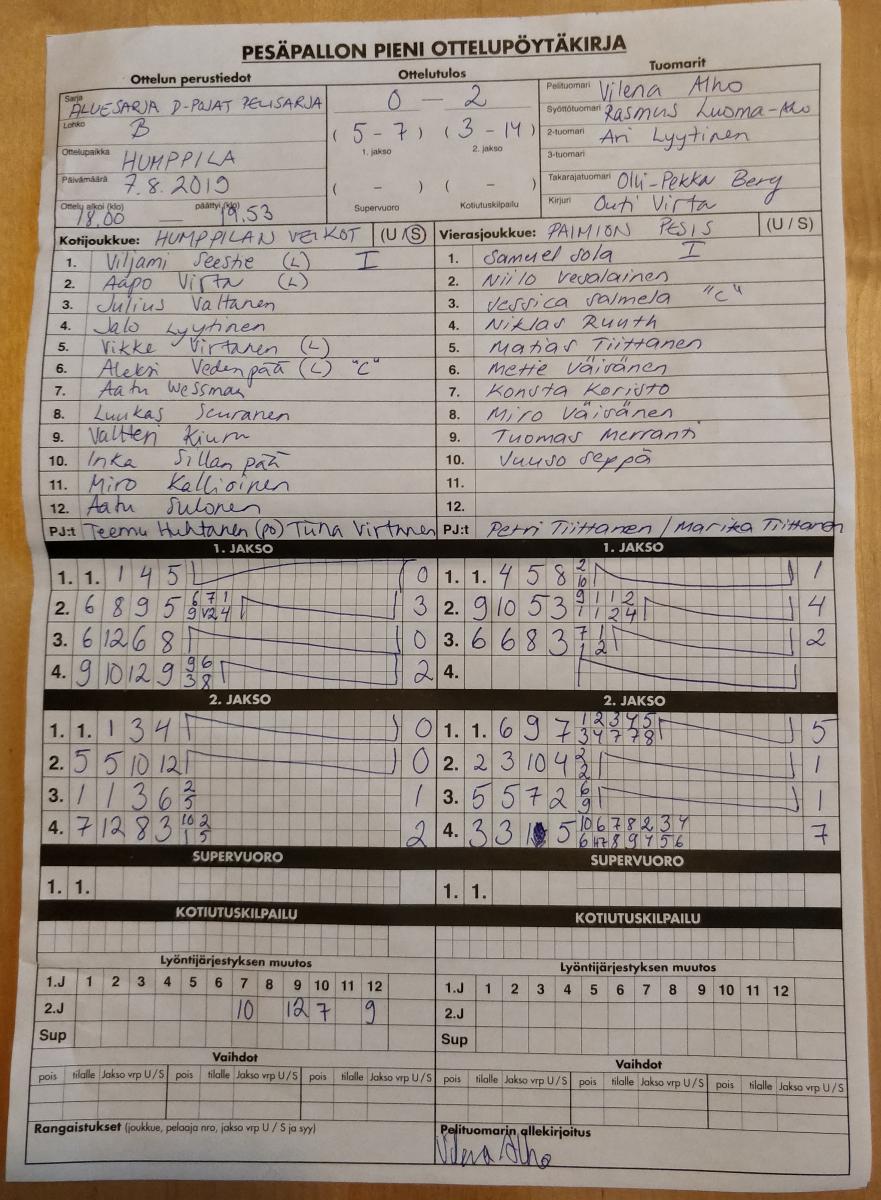 PESÄPALLON PIENI OTTELUPÖYTÄKIRJA
Ottelun perustiedot
Sarja ALUESARJA D-POJAT PELISARJA
Lohko B
Ottelupaikka HUMPPILA
Päivämäärä 7.8.2019
Ottelu alkoi (klo) 18.00 — päättyi (klo) 19.53
Ottelutulos
0 – 2
( 5 – 7 ) ( 3 – 14 )
1. jakso 2. jakso
( – ) ( – )
Supervuoro Kotiutuskilpailu
Tuomarit
Pelituomari Vilena Alho
Syöttötuomari Rasmus Luoma-Aho
2-tuomari Ari Lyytinen
3-tuomari
Takarajatuomari Olli-Pekka Berg
Kirjuri Outi Virta
Kotijoukkue: HUMPPILAN VEIKOT (U/S)
1. Viljami Seestie (L) I
2. Aapo Virta (L)
3. Julius Valtanen
4. Jalo Lyytinen
5. Vikke Virtanen (L)
6. Aleksi Vedenpää (L) "C"
7. Aatu Wessman
8. Luukas Seuranen
9. Valtteri Kiuru
10. Inka Sillanpää
11. Miro Kallioinen
12. Aatu Sulonen
PJ:t Teemu Huhtanen (po) Tiina Virtanen
Vierasjoukkue: PAIMION PESIS (U/S)
1. Samuel Sola I
2. Niilo Vesalainen
3. Jessica Salmela "C"
4. Niklas Ruuth
5. Matias Tiittanen
6. Mette Väisänen
7. Konsta Koristo
8. Miro Väisänen
9. Tuomas Merranti
10. Juuso Seppä
11.
12.
PJ:t Petri Tiittanen / Marika Tiittanen
1. JAKSO
1. 1. 1 4 5 0
2. 6 8 9 5 3
3. 6 12 6 8 0
4. 9 10 12 9 9 6 2
3 8
1. JAKSO
1. 1. 4 5 8 2 1
10
2. 9 10 5 3 9 1 1 2 4
1 1 2 4
3. 6 6 8 3 7 1 2
1 2
4.
2. JAKSO
1. 1. 1 3 4 0
2. 5 5 10 12 0
3. 1 1 3 6 2 1
5
4. 7 12 8 3 10 2 2
1 5
2. JAKSO
1. 1. 6 9 7 1 2 3 4 5 5
3 4 7 7 8
2. 2 3 10 4 2 1
2
3. 5 5 7 2 6 1
9
4. 3 3 1 5 10 6 7 8 2 3 4 7
SUPERVUORO
1. 1.
SUPERVUORO
1. 1.
KOTIUTUSKILPAILU
KOTIUTUSKILPAILU
Lyöntijärjestyksen muutos
1.J 1 2 3 4 5 6 7 8 9 10 11 12
2.J 10 12 7 9
Sup
Lyöntijärjestyksen muutos
1.J 1 2 3 4 5 6 7 8 9 10 11 12
2.J
Sup
Vaihdot
pois tilalle Jakso vrp U/S pois tilalle Jakso vrp U/S pois tilalle Jakso vrp U/S
Vaihdot
pois tilalle Jakso vrp U/S pois tilalle Jakso vrp U/S pois tilalle Jakso vrp U/S
Rangaistukset (joukkue, pelaaja nro, jakso vrp U/S ja syy)
Pelituomarin allekirjoitus
Vilena Alho